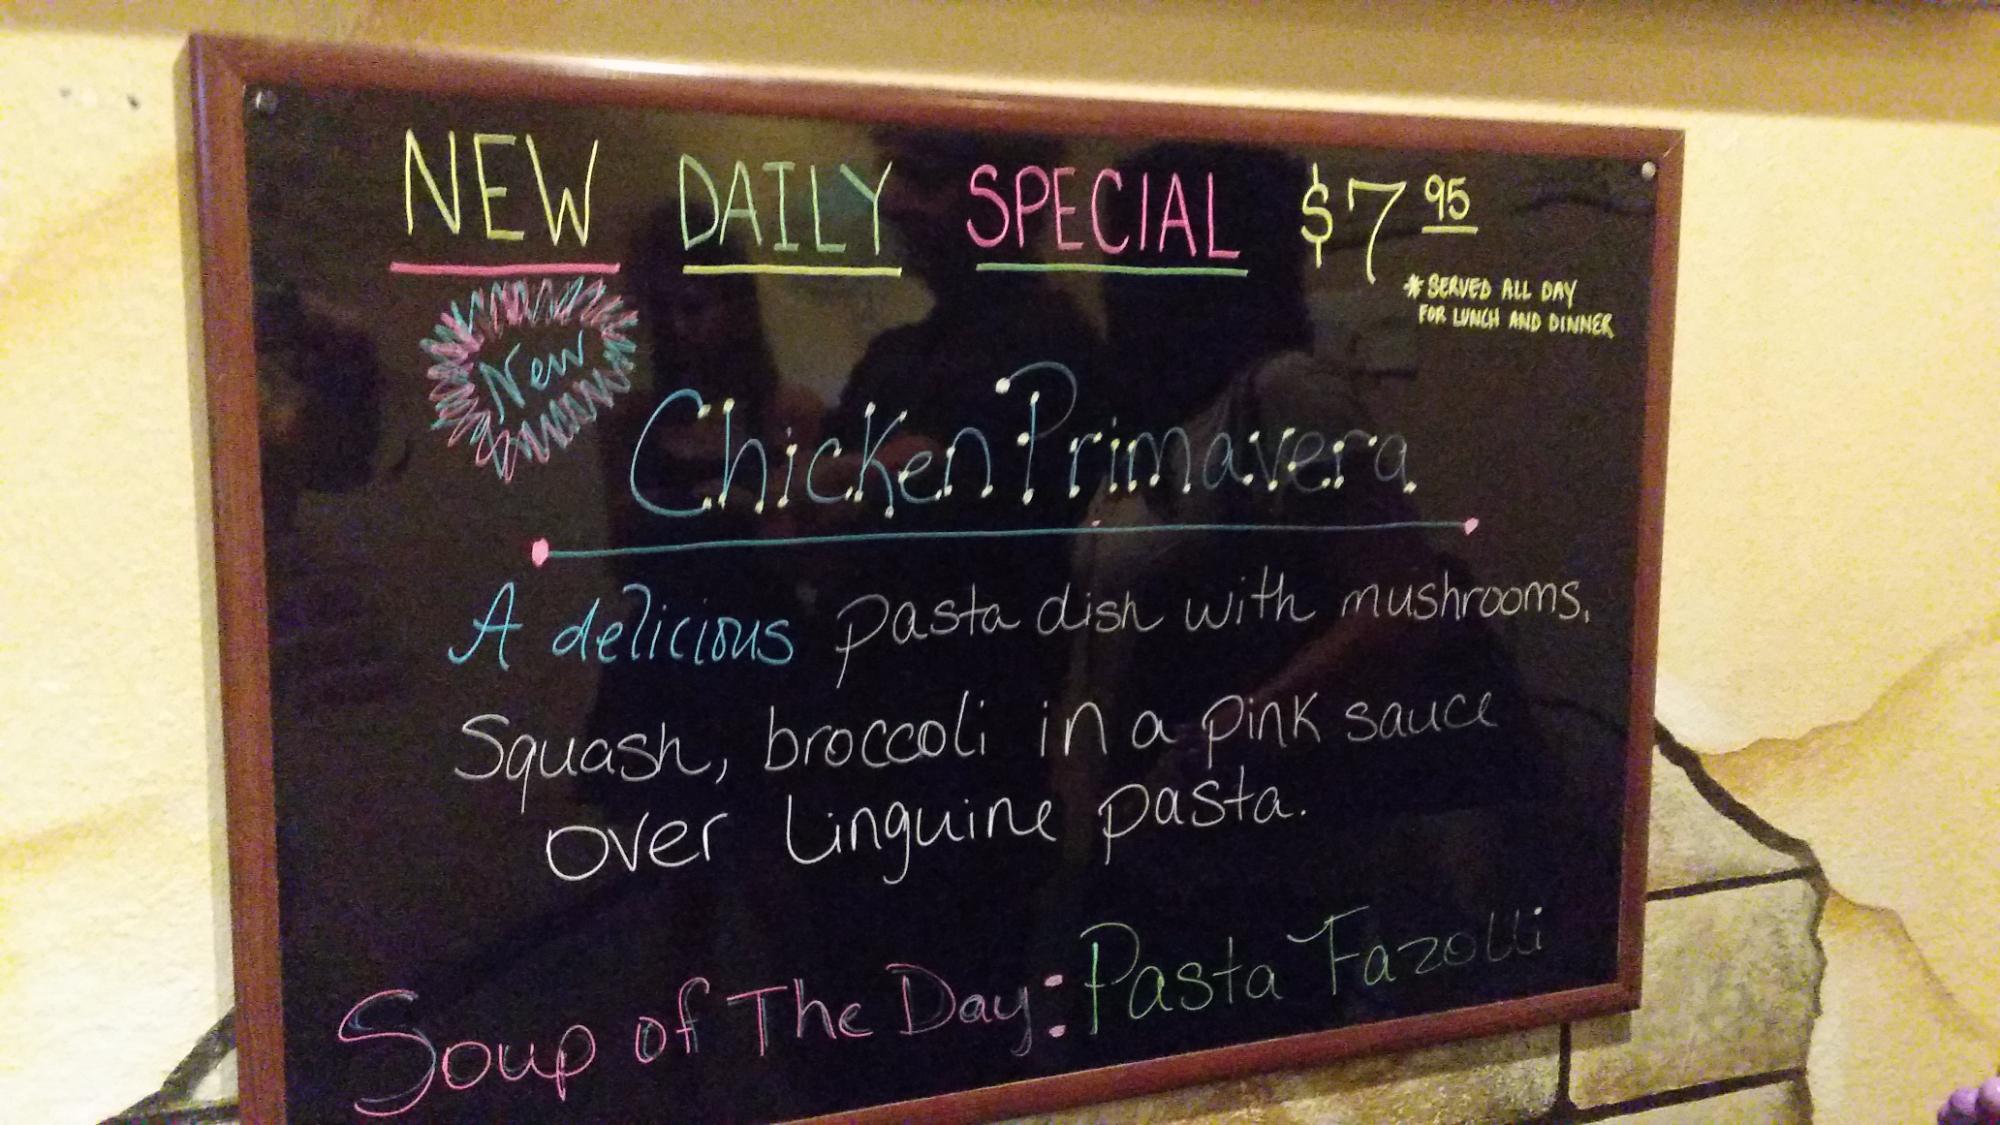 NEW DAILY SPECIAL $7 95
* SERVED ALL DAY
FOR LUNCH AND DINNER
New
Chicken Primavera
A delicious pasta dish with mushrooms,
Squash, broccoli in a pink sauce
over Linguine pasta.
Soup of The Day: Pasta Fazolli